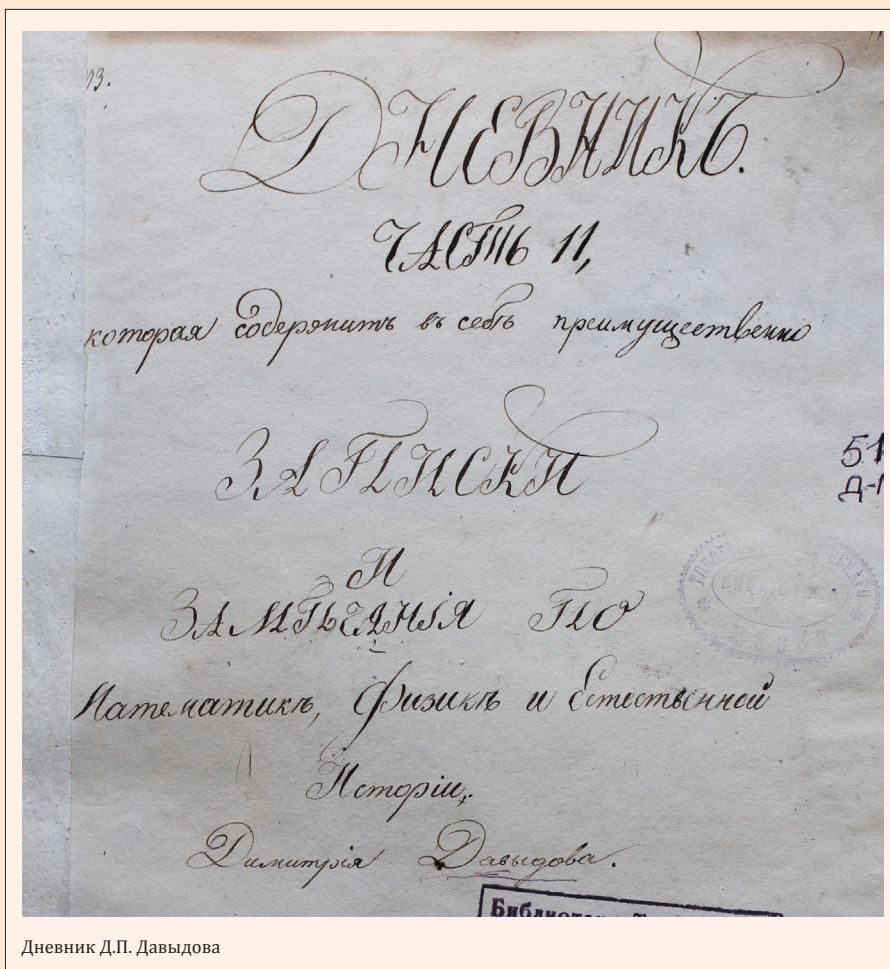 ДНЕВНИКЪ.
ЧАСТЬ 11,
которая содержитъ въ себѣ преимущественно
ЗАПИСКИ
И
ЗАМѢЧАНІЯ ПО
Математикѣ, Физикѣ и Естественной
Исторіи.
Димитрія Давыдова.
51
Д-1
БИБЛІОТЕКА
МУЗЕЯ
Дневник Д.П. Давыдова